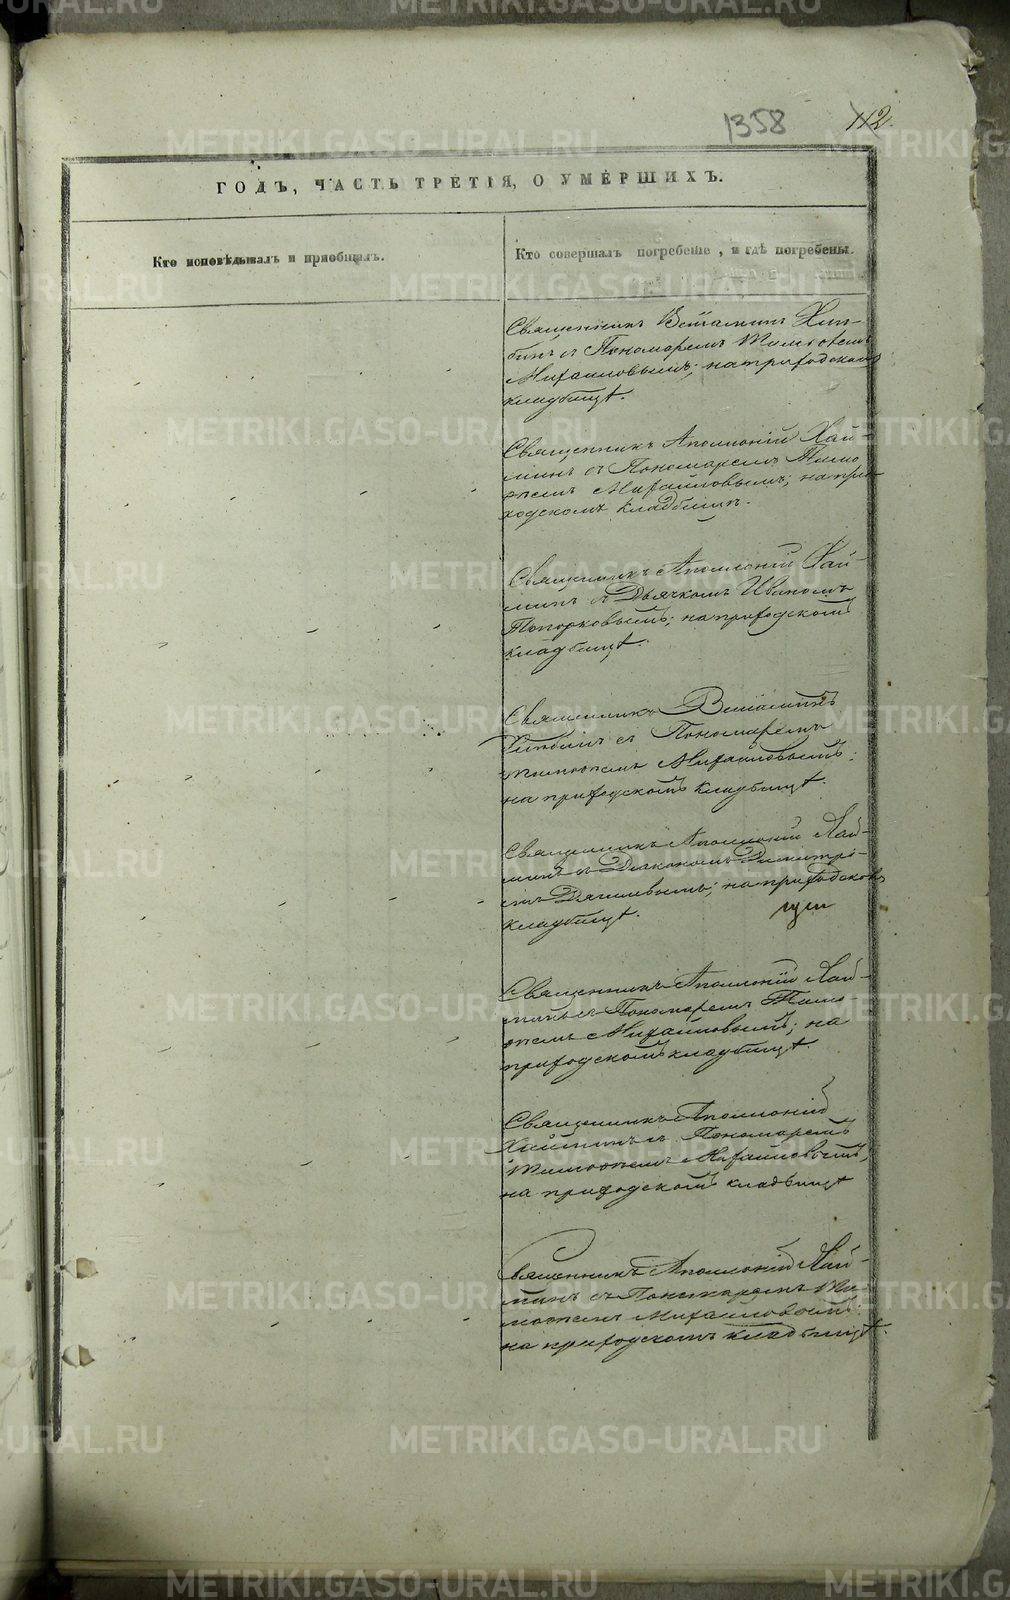 1358
112.
ГОДЪ, ЧАСТЬ ТРЕТІЯ, О УМЕРШИХЪ.
Кто исповѣдывалъ и пріобщалъ.
Кто совершалъ погребеніе, и гдѣ погребены.
Священникъ Веніаминъ Хлы-
бинъ съ Пономаремъ Тимоѳеемъ
Михайловымъ; на приходскомъ
кладбищѣ.
Священникъ Аполлоній Хай-
минъ съ Пономаремъ Тимо
ѳеемъ Михайловымъ; на при-
ходскомъ кладбищѣ.
Священникъ Аполлоній Хай-
минъ съ Дьячкомъ Иваномъ
Топорковымъ; на приходскомъ
кладбищѣ.
Священникъ Веніаминъ
съ Пономаремъ
Тимоѳеемъ Михайловымъ;
на приходскомъ кладбищѣ.
Священникъ Аполлоній Хай-
минъ съ Діакономъ Димитрі-
емъ Дягилевымъ; на приходскомъ
кладбищѣ.
Священникъ Аполлоній Хай-
минъ съ Пономаремъ Тимо
ѳеемъ Михайловымъ; на
приходскомъ кладбищѣ.
Священникъ Аполлоній
Хайминъ съ Пономаремъ
Тимоѳеемъ Михайловымъ;
на приходскомъ кладбищѣ
Священникъ Аполлоній Хай-
минъ съ Пономаремъ Ти-
моѳеемъ Михайловымъ;
на приходскомъ кладбищѣ.
METRIKI.GASO-URAL.RU